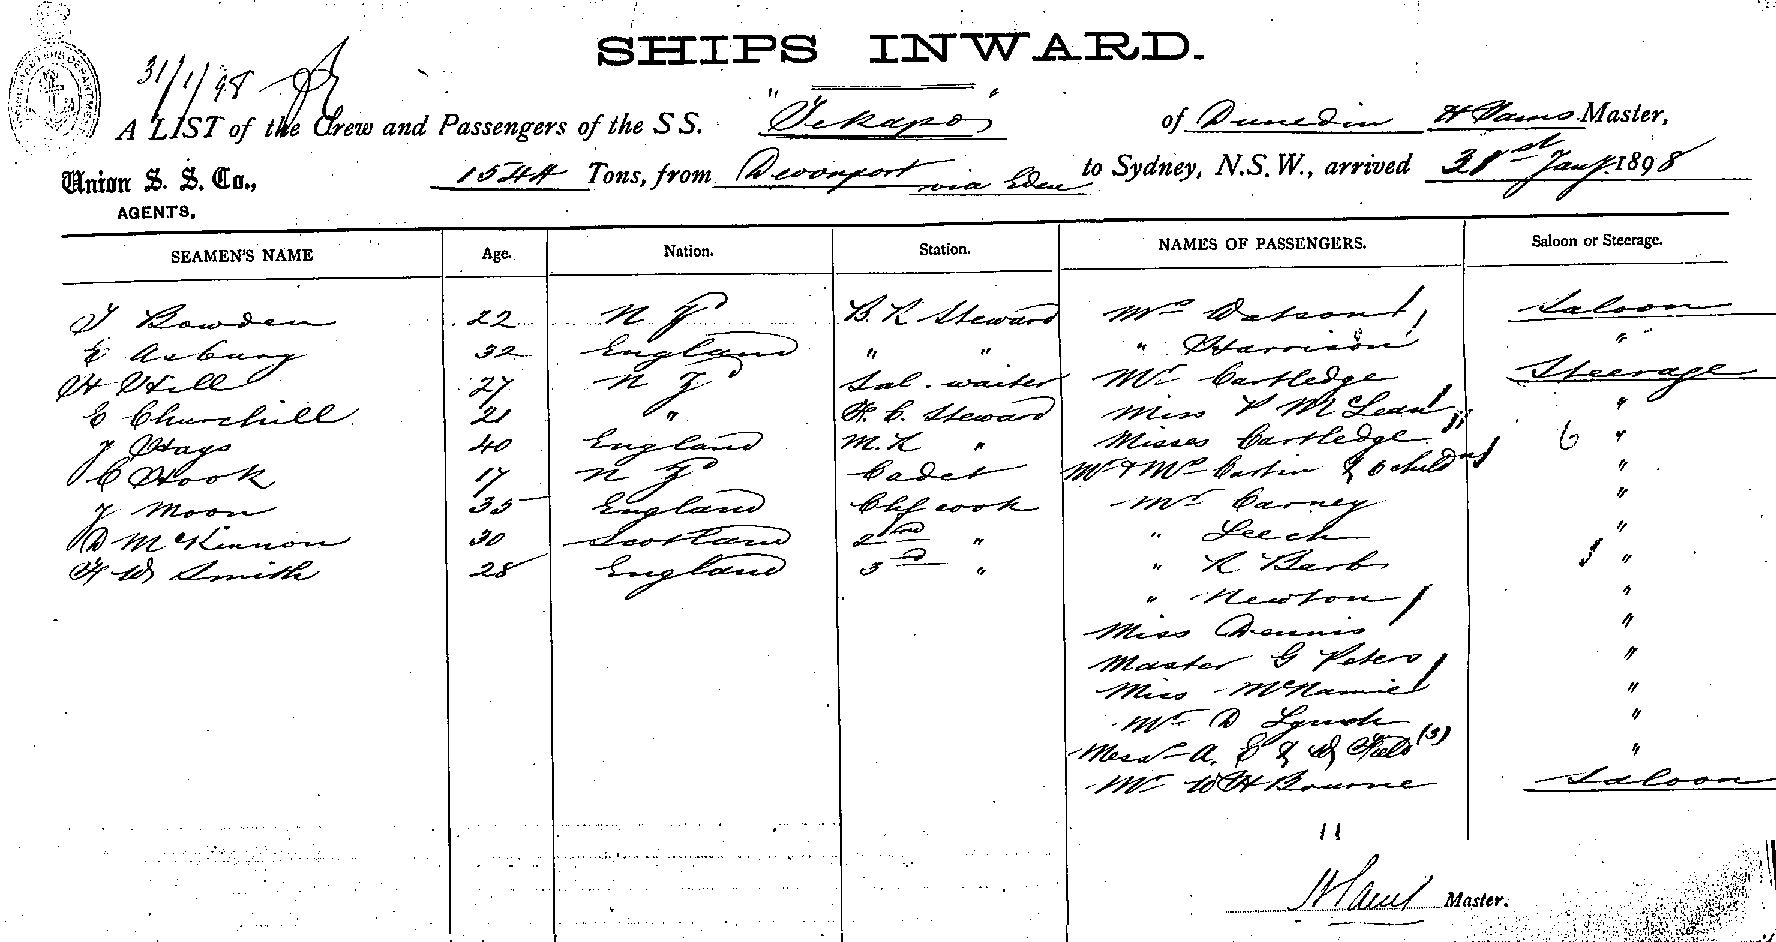 SHIPS INWARD.
31/1/98
A LIST of the Crew and Passengers of the S S. "Tekapo" of Dunedin Master,
Union S. S. Co., 1544 Tons, from Devonport via Eden to Sydney, N.S.W., arrived 31st Jany. 1898
AGENTS,
SEAMEN'S NAME Age. Nation. Station. NAMES OF PASSENGERS. Saloon or Steerage.
Bowden 22 N Z B. R Steward Mrs Datson Saloon
E Asbury 32 England " " " Harrison "
H Hill 27 N Z Sal. waiter Mr Cartledge Steerage
E Churchill 21 " F. C. Steward Miss McLean "
J Hays 40 England M. R " Misses Cartledge 6 "
C Hook 17 N Z Cadet Mr & Mrs & 2 child "
J Moon 35 England Chf cook Mr Carney "
D McKinnon 30 Scotland 2nd " " Leech "
H W Smith 28 England 3rd " " R Barb "
" Newton "
Miss Dennis "
Master G Peters "
Miss McNamie "
Mr D Lynch "
Messrs A. E & W Field (3) "
Mr W H Bourne Saloon
11
Master.